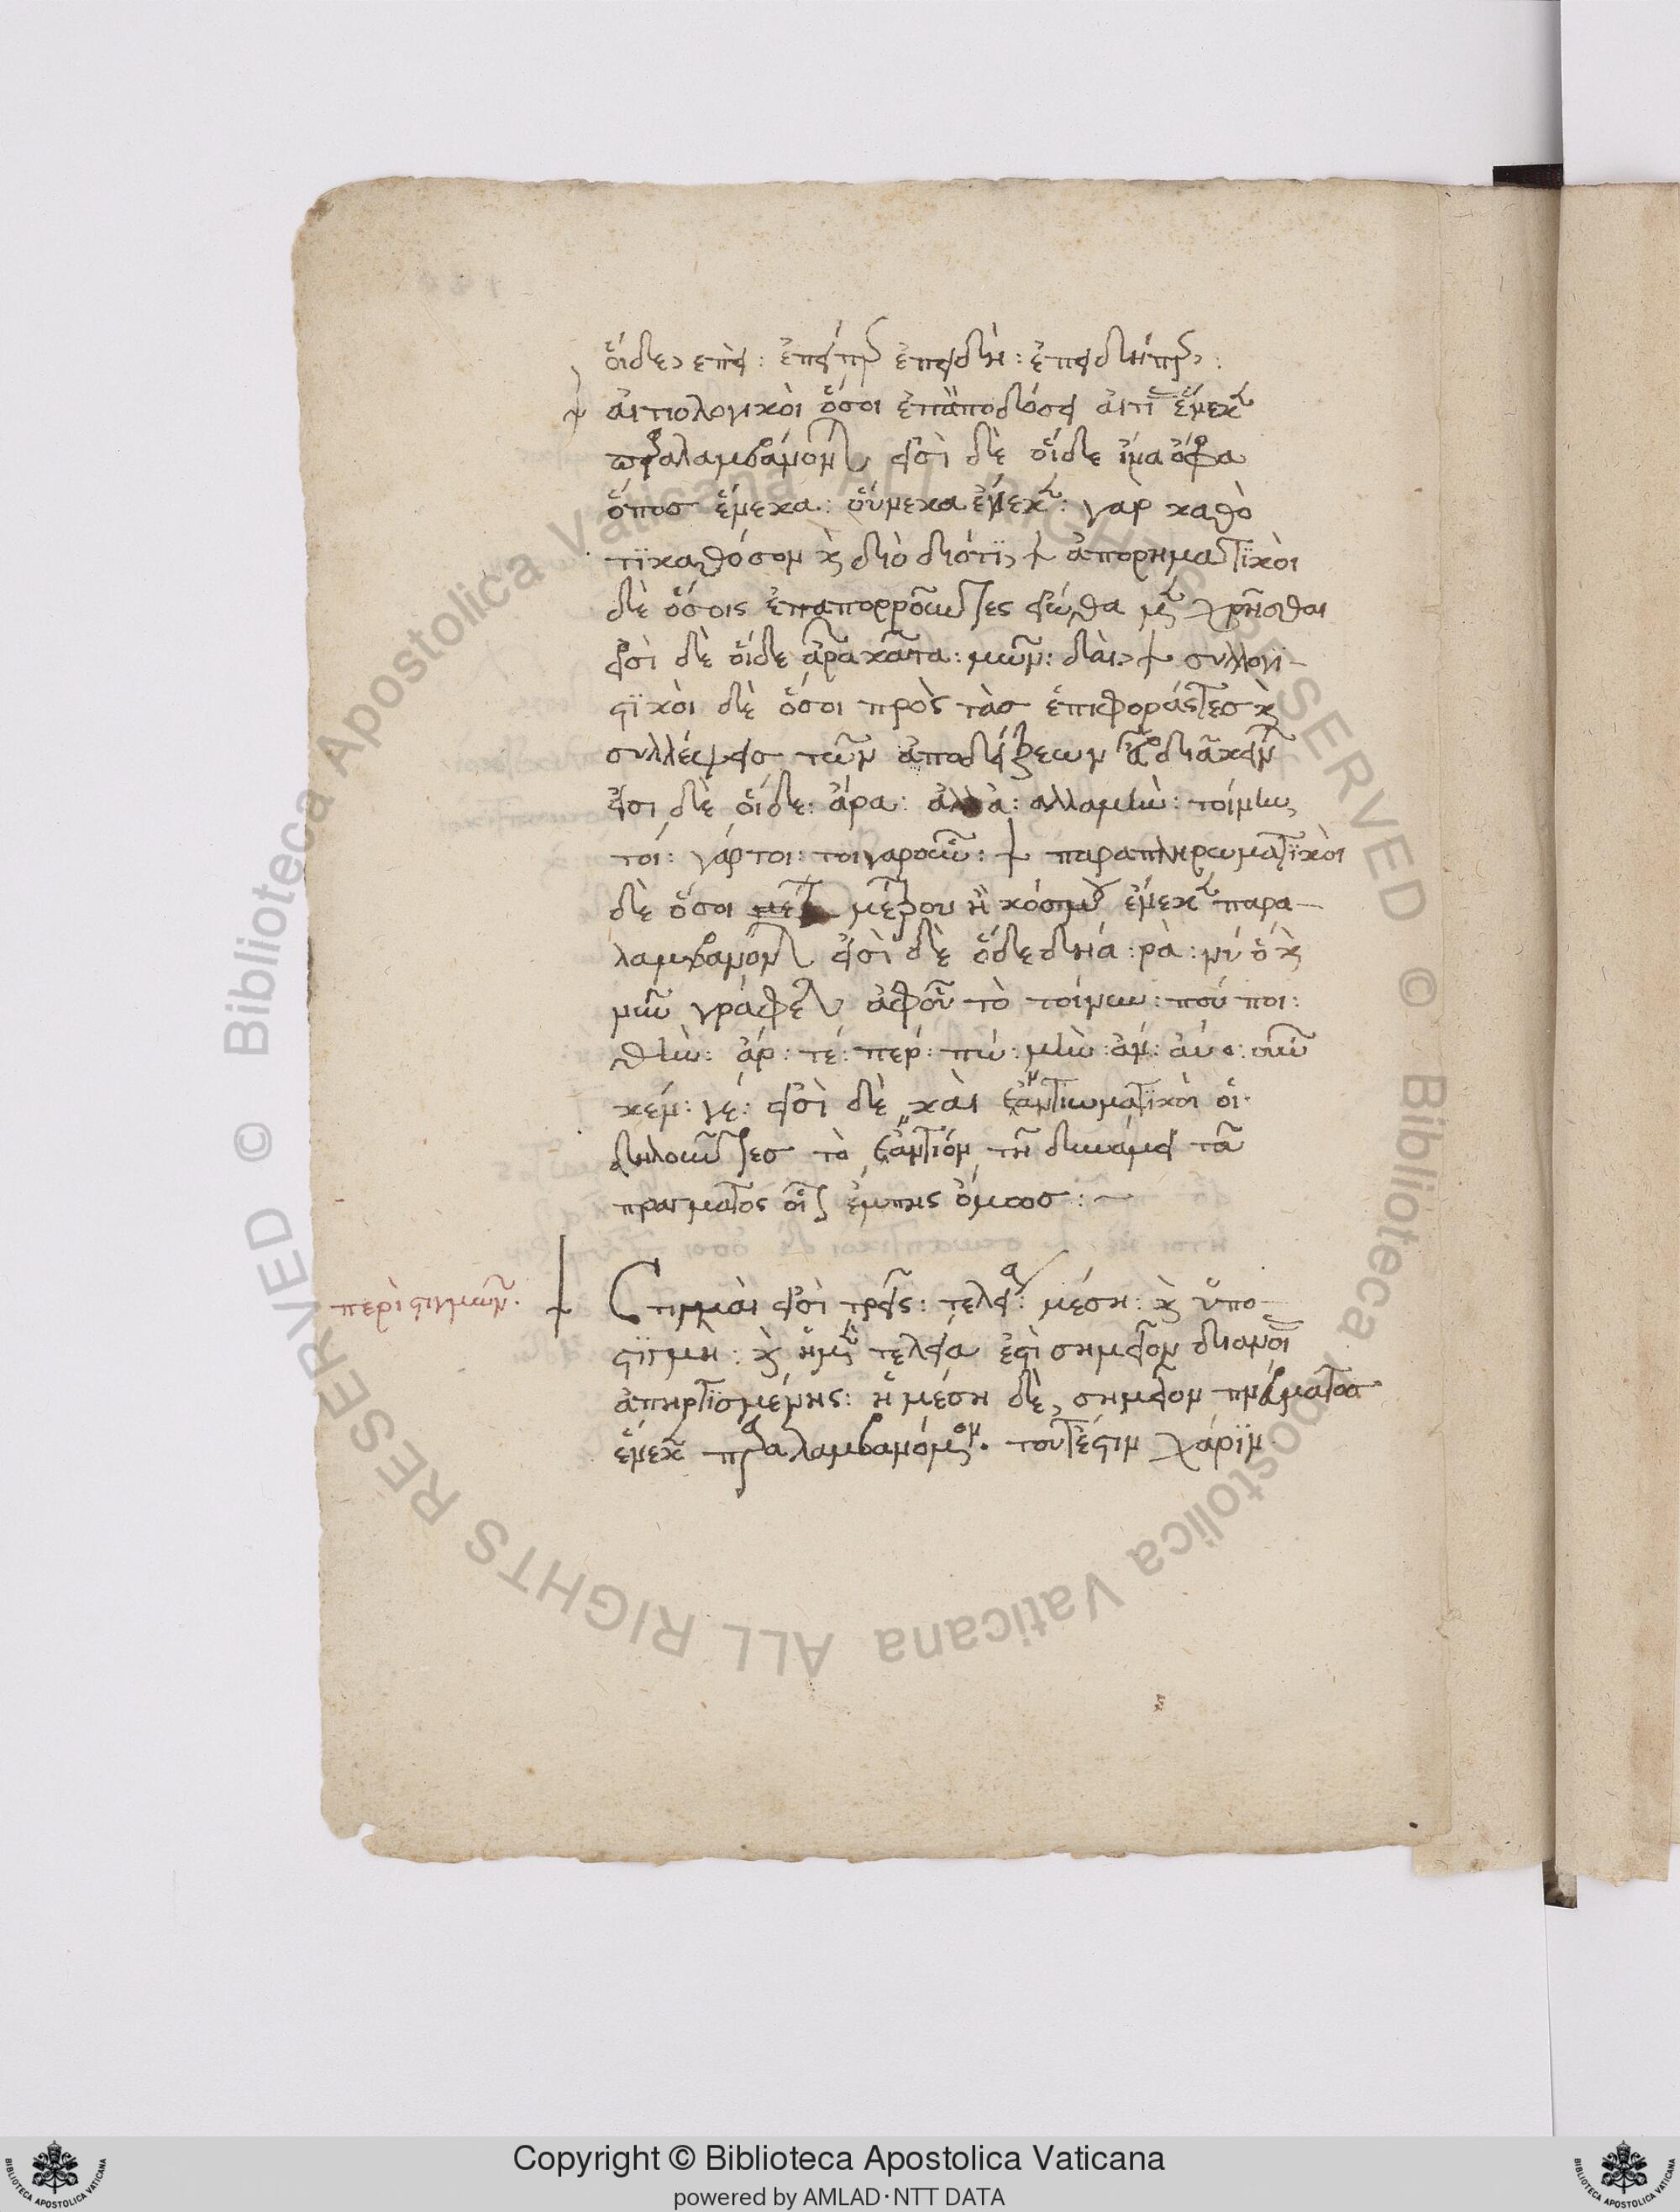 ὅιδε, επεὶ: ἐπείπερ ἐπειδὴ: ἐπειδήπερ:
ἀιτιολογικὸι ὅσοι ἐπ ἀποδόσει ἀιτί ἕνεκα
παραλαμβάνονται εἰσὶ δὲ ὅιδε ἵνα ὄφρα
ὅπωσ ἕνεκα: ὅυνεκα ἕνεκα: γὰρ καθὸ
τϊ καθόσον κ διὸ διότϊ, + ἀπορηματϊκὸι
δὲ ὅσοις ἐπαπορροῦντες εἰώθα χρῆσθαι
εἰσὶ δὲ ὅιδε ἆρα κᾆτα: μῶν: δὰι, + συλλογϊ-
στϊκὸι δὲ ὅσοι πρὸς τὰσ ἐπιφοράς τεσ κ
συλλέψεισ τῶν ἀποδείξεων
εἰσι δὲ ὅιδε: ἄρα: ἀλλὰ: αλλαμὴν: τοίνυν
τοι: γάρτοι: τοιγαροῦν: + παραπληρωματϊκὸι
δὲ ὅσοι μέτρου ἢ κόσμου ἕνεκα παρα-
λαμβάνονται εἰσὶ δὲ ὅδε δηά: ρὰ: νύ
νῦν γράφε ἀφοῦ τὸ τοίνυν: πού ποι:
θὴν: ἄρ: τέ: περ: πώ: μὴν: ἄν: ἀύ: οὖν
κέν: γέ: εἰσὶ δὲ κὰι ἐναντιωματϊκὸι ὁι
δηλοῦντεσ τὸ ἐναντιόν τῆ δυνάμει τοῦ
πραγματος ἔμπης ὅμωσ: ~
περὶ στιγμῶν. + Στιγμὰι εἰσὶ τρεῖς: τελεία: μέση: κ ὑπο-
στϊγμὴ: κ ἡ μὲν τελεία ἐστὶ σημεῖον διανοί
ἀπηρτϊσμένης: ἡ μέση δὲ, σημεῖον πνεύματοσ
ἕνεκα παραλαμβανόμενον. τουτέστιν χάρϊν
Copyright © Biblioteca Apostolica Vaticana
powered by AMLAD·NTT DATA